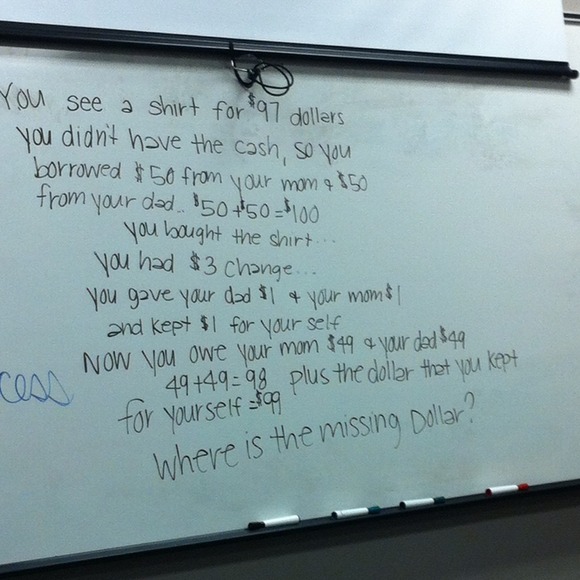 You see a shirt for $97 dollars
you didn't have the cash, so you
borrowed $50 from your mom & $50
from your dad.. $50+$50=$100
you bought the shirt...
you had $3 change...
you gave your dad $1 & your mom $1
and kept $1 for your self
NOW you owe your mom $49 & your dad $49
49+49=98 plus the dollar that you kept
cess
for yourself =$99
Where is the missing Dollar?